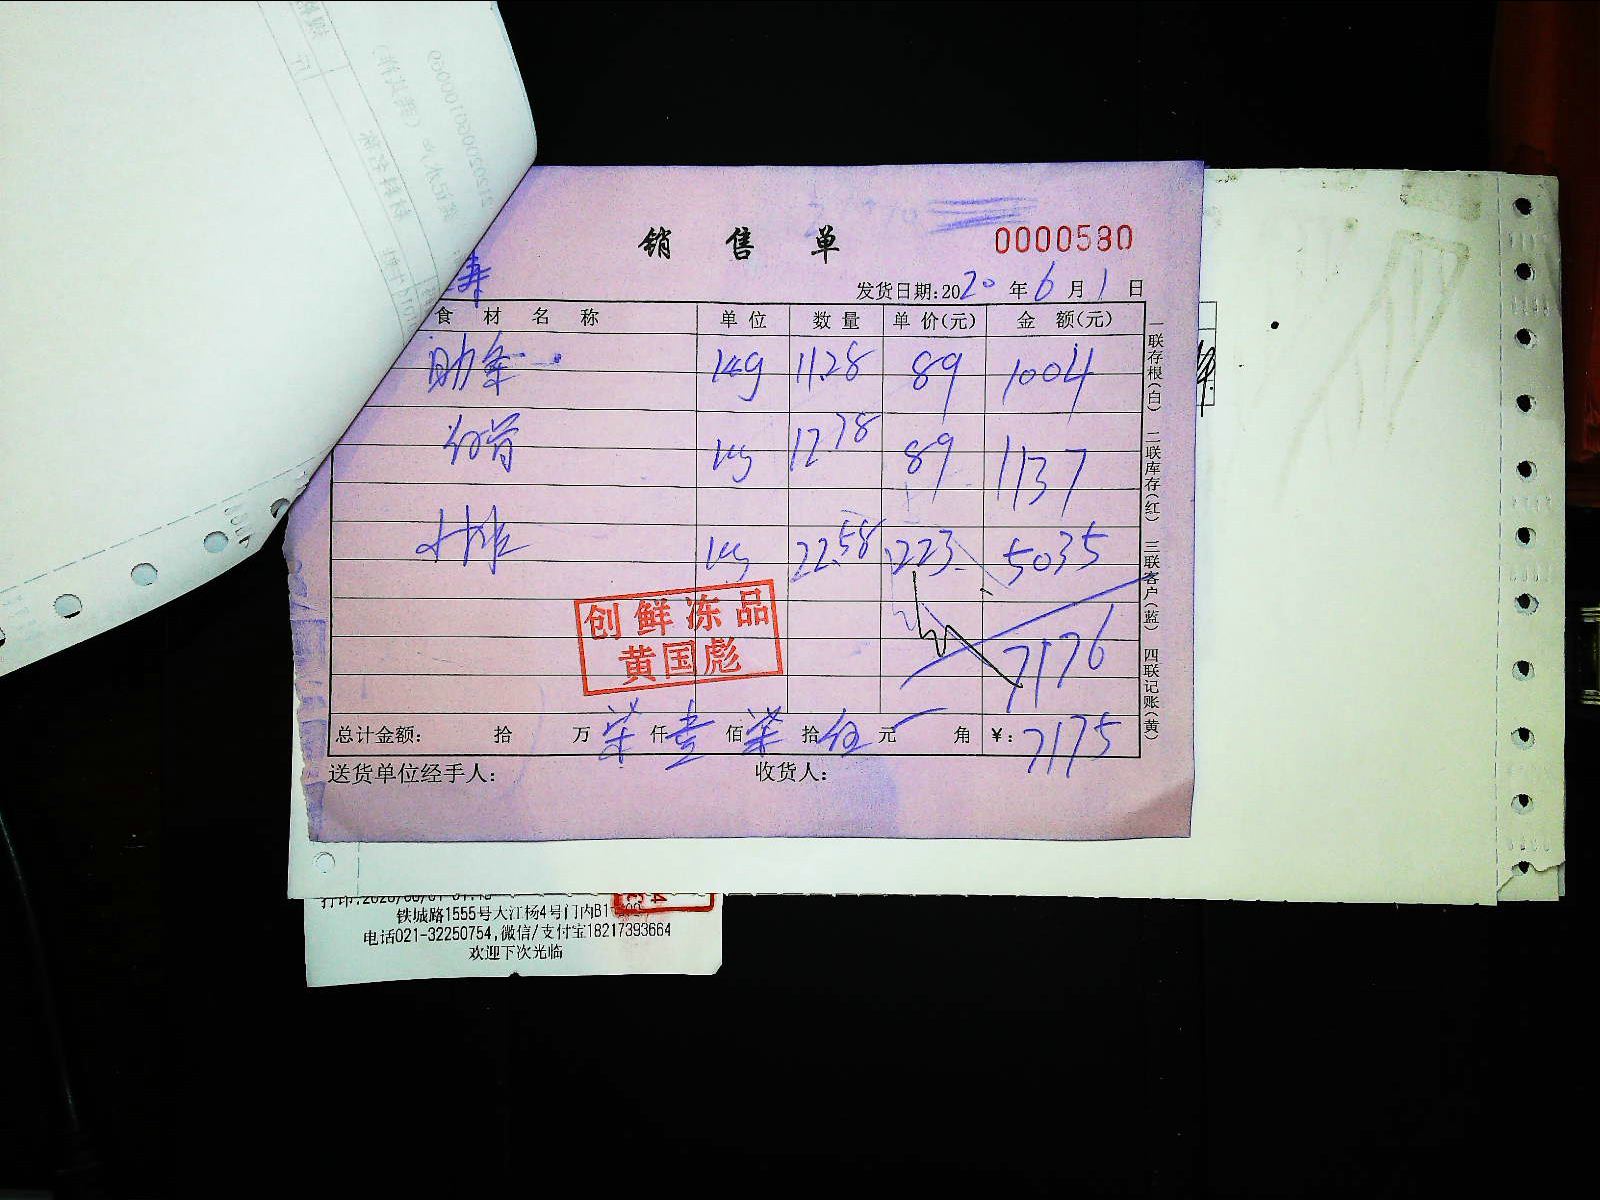 销售单
0000580
发货日期:2020年6月1日
食材名称 单位 数量 单价(元) 金额(元)
助条 kg 11.28 89 1004
kg 12.78 89 1137
kg 22.58 223 5035
7176
创鲜冻品
黄国彪
总计金额: 拾 万 柒 仟 壹 佰 柒 拾 伍 元 角 ¥: 7175
送货单位经手人: 收货人:
一联存根(白) 二联库存(红) 三联客户(蓝) 四联记账(黄)
铁城路1555号大江杨4号门内B1
电话021-32250754,微信/支付宝18217393664
欢迎下次光临